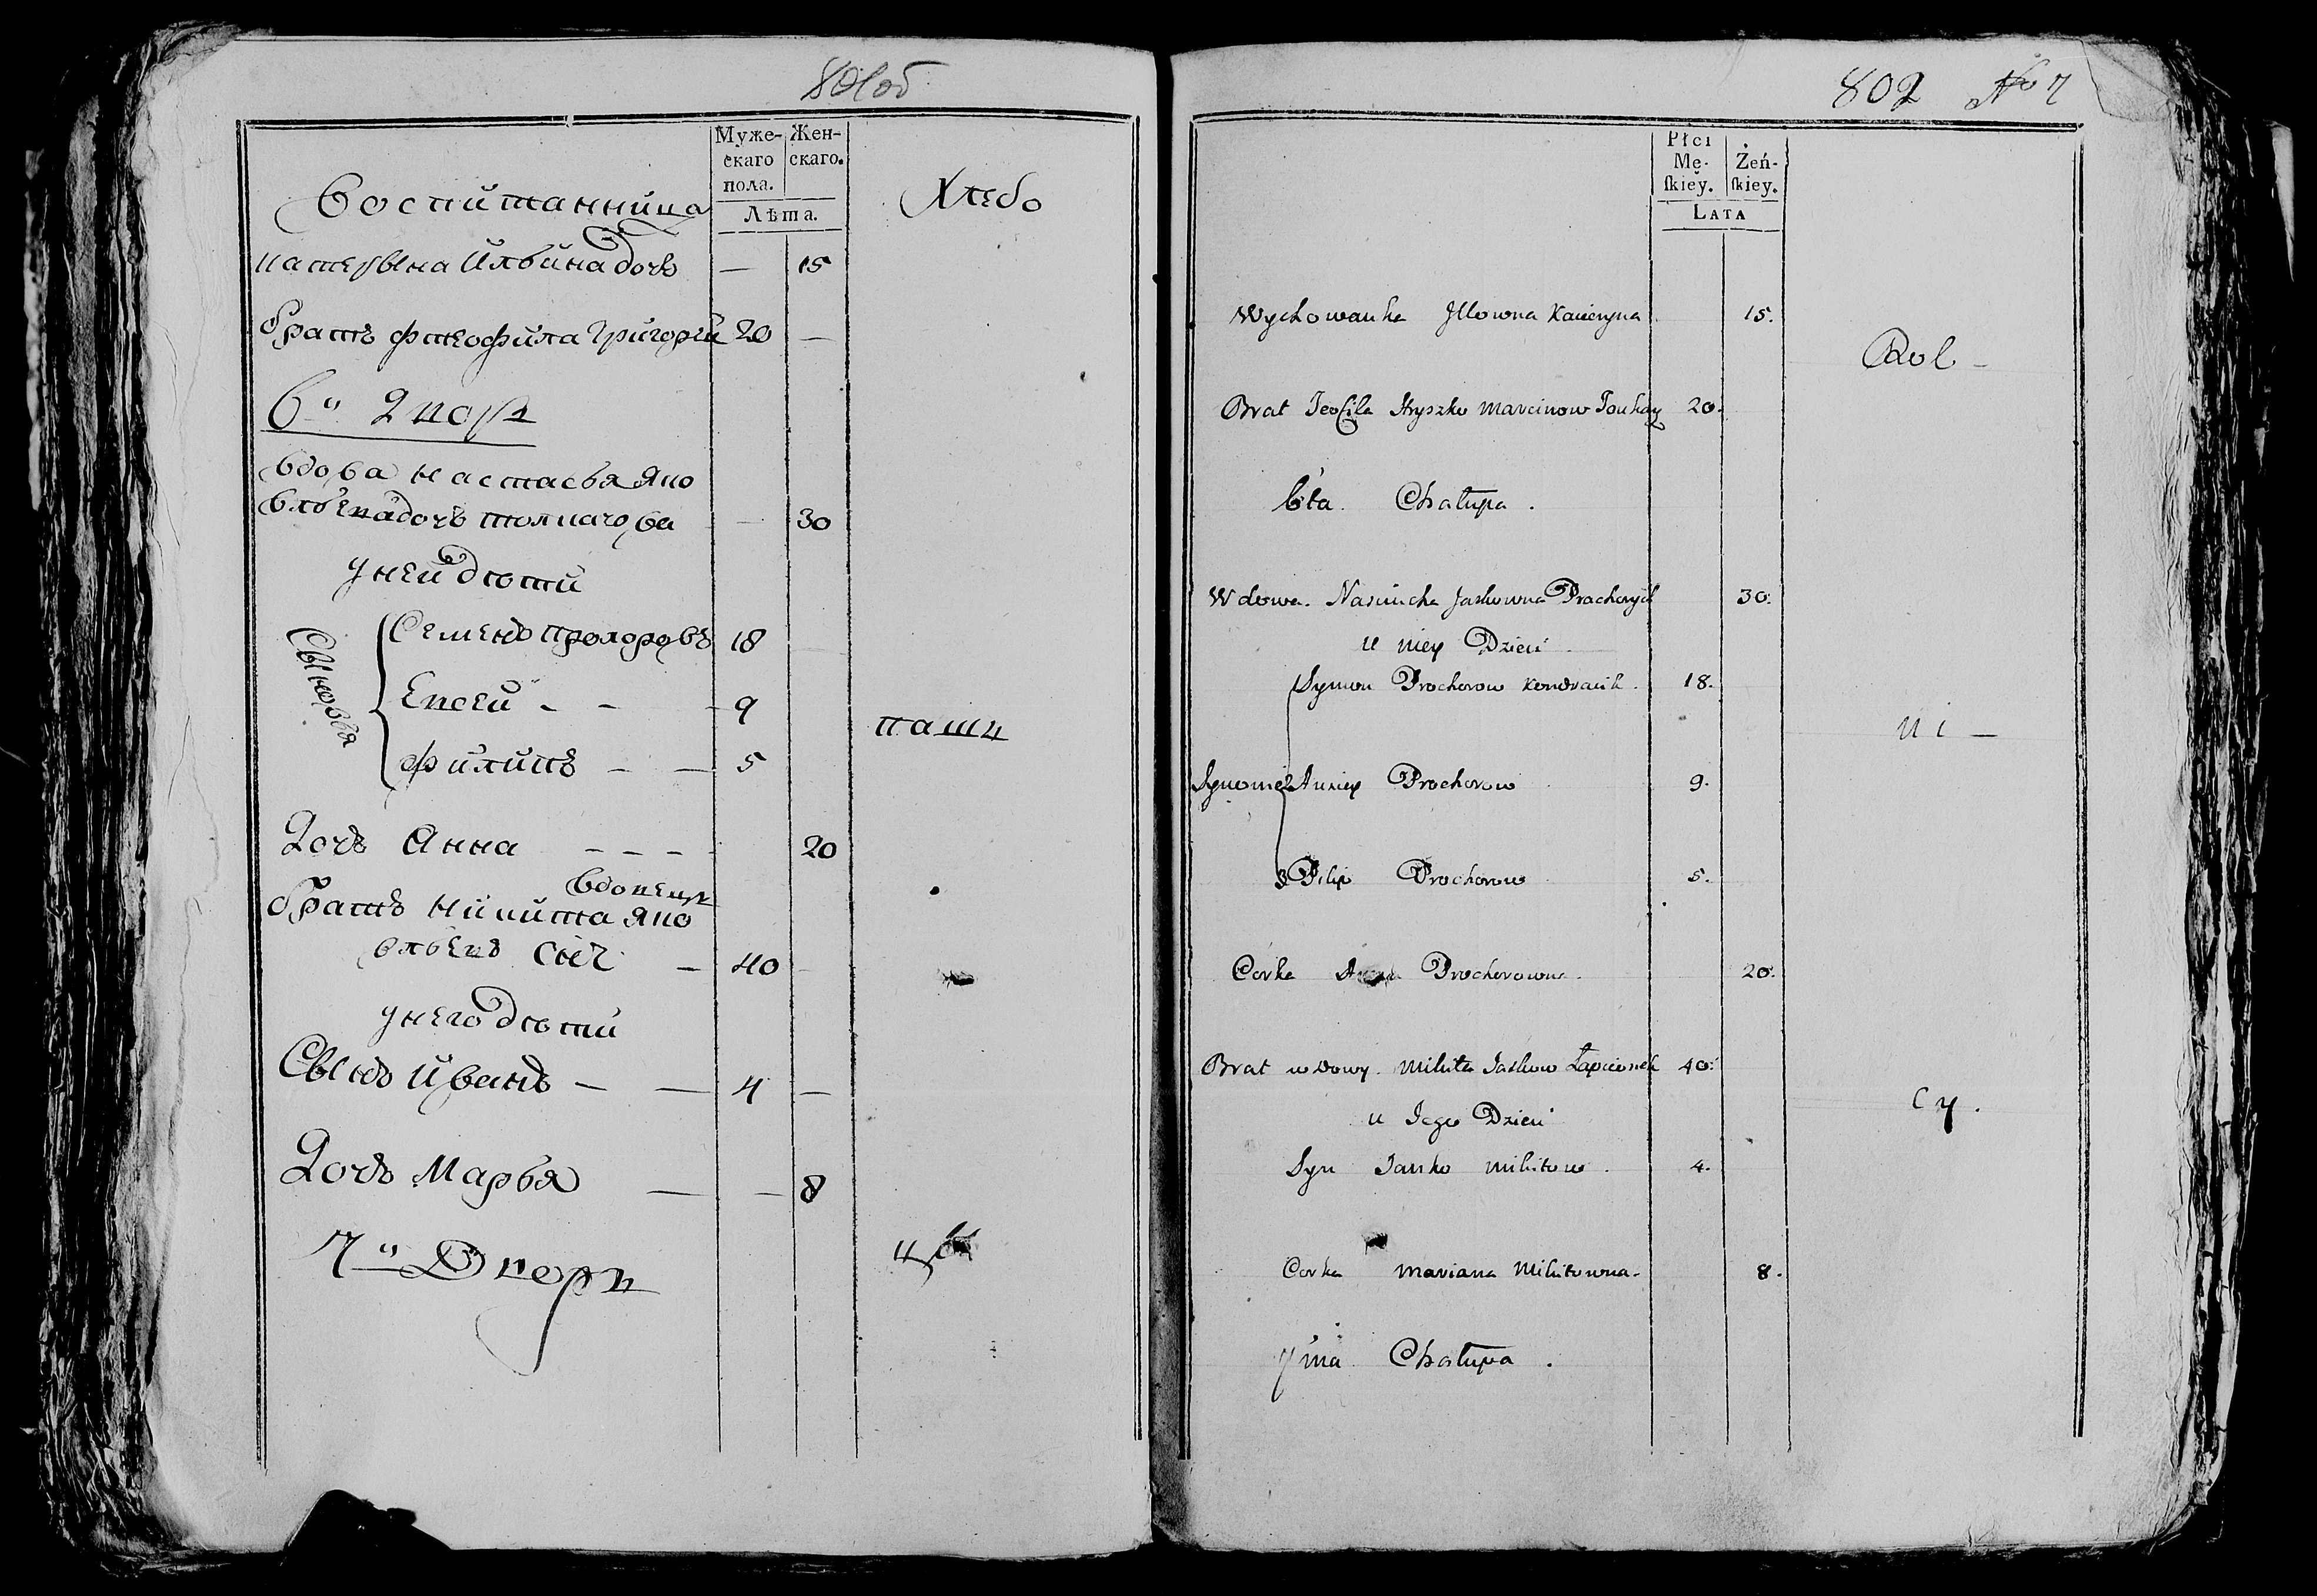 801об
Муже-
скаго
пола.
Жен-
скаго.
Лѣта.
Воспитанница
Катерына Ильина дочь — 15
братъ Фтеофила Григорей 20 —
Хлебо
6й Двор
вдова Настасья Яко
влевa дочь толкачова — 30
у ней дети
Сыновья
Семенъ Прохоровъ 18
Евсей - - 9
Филипъ — — 5
паш
Дочь Анна - - - - 20
вдовец
братъ Никита Яко
влевъ сыч — 40
у него дети
Сынъ Иванъ — — 4 —
Дочь Марья — — 8
7й Двор
цы
802 No 7
Płci
Mę-
skiey.
Żeń-
skiey.
LATA
Wychowanka Illowna Kacieryna 15.
Rol -
Brat Teofila Hryszko Marcinow 20.
6ta Chałupa.
Wdowa. Jaskowna 30.
u niey Dzieci
Symon Prochorow 18.
ni —
Synowie 2 Auxiey Prochorow 9.
3 Filip Prochorow 5.
Corka Prochorowna. 20.
Brat wdowy. Mikita Jaskow Łapcionek 40.
u Jego Dzieci
cy.
Syn Janko Mikitow. 4.
Corka Mariana Mikitowna. 8.
7ma Chałupa.